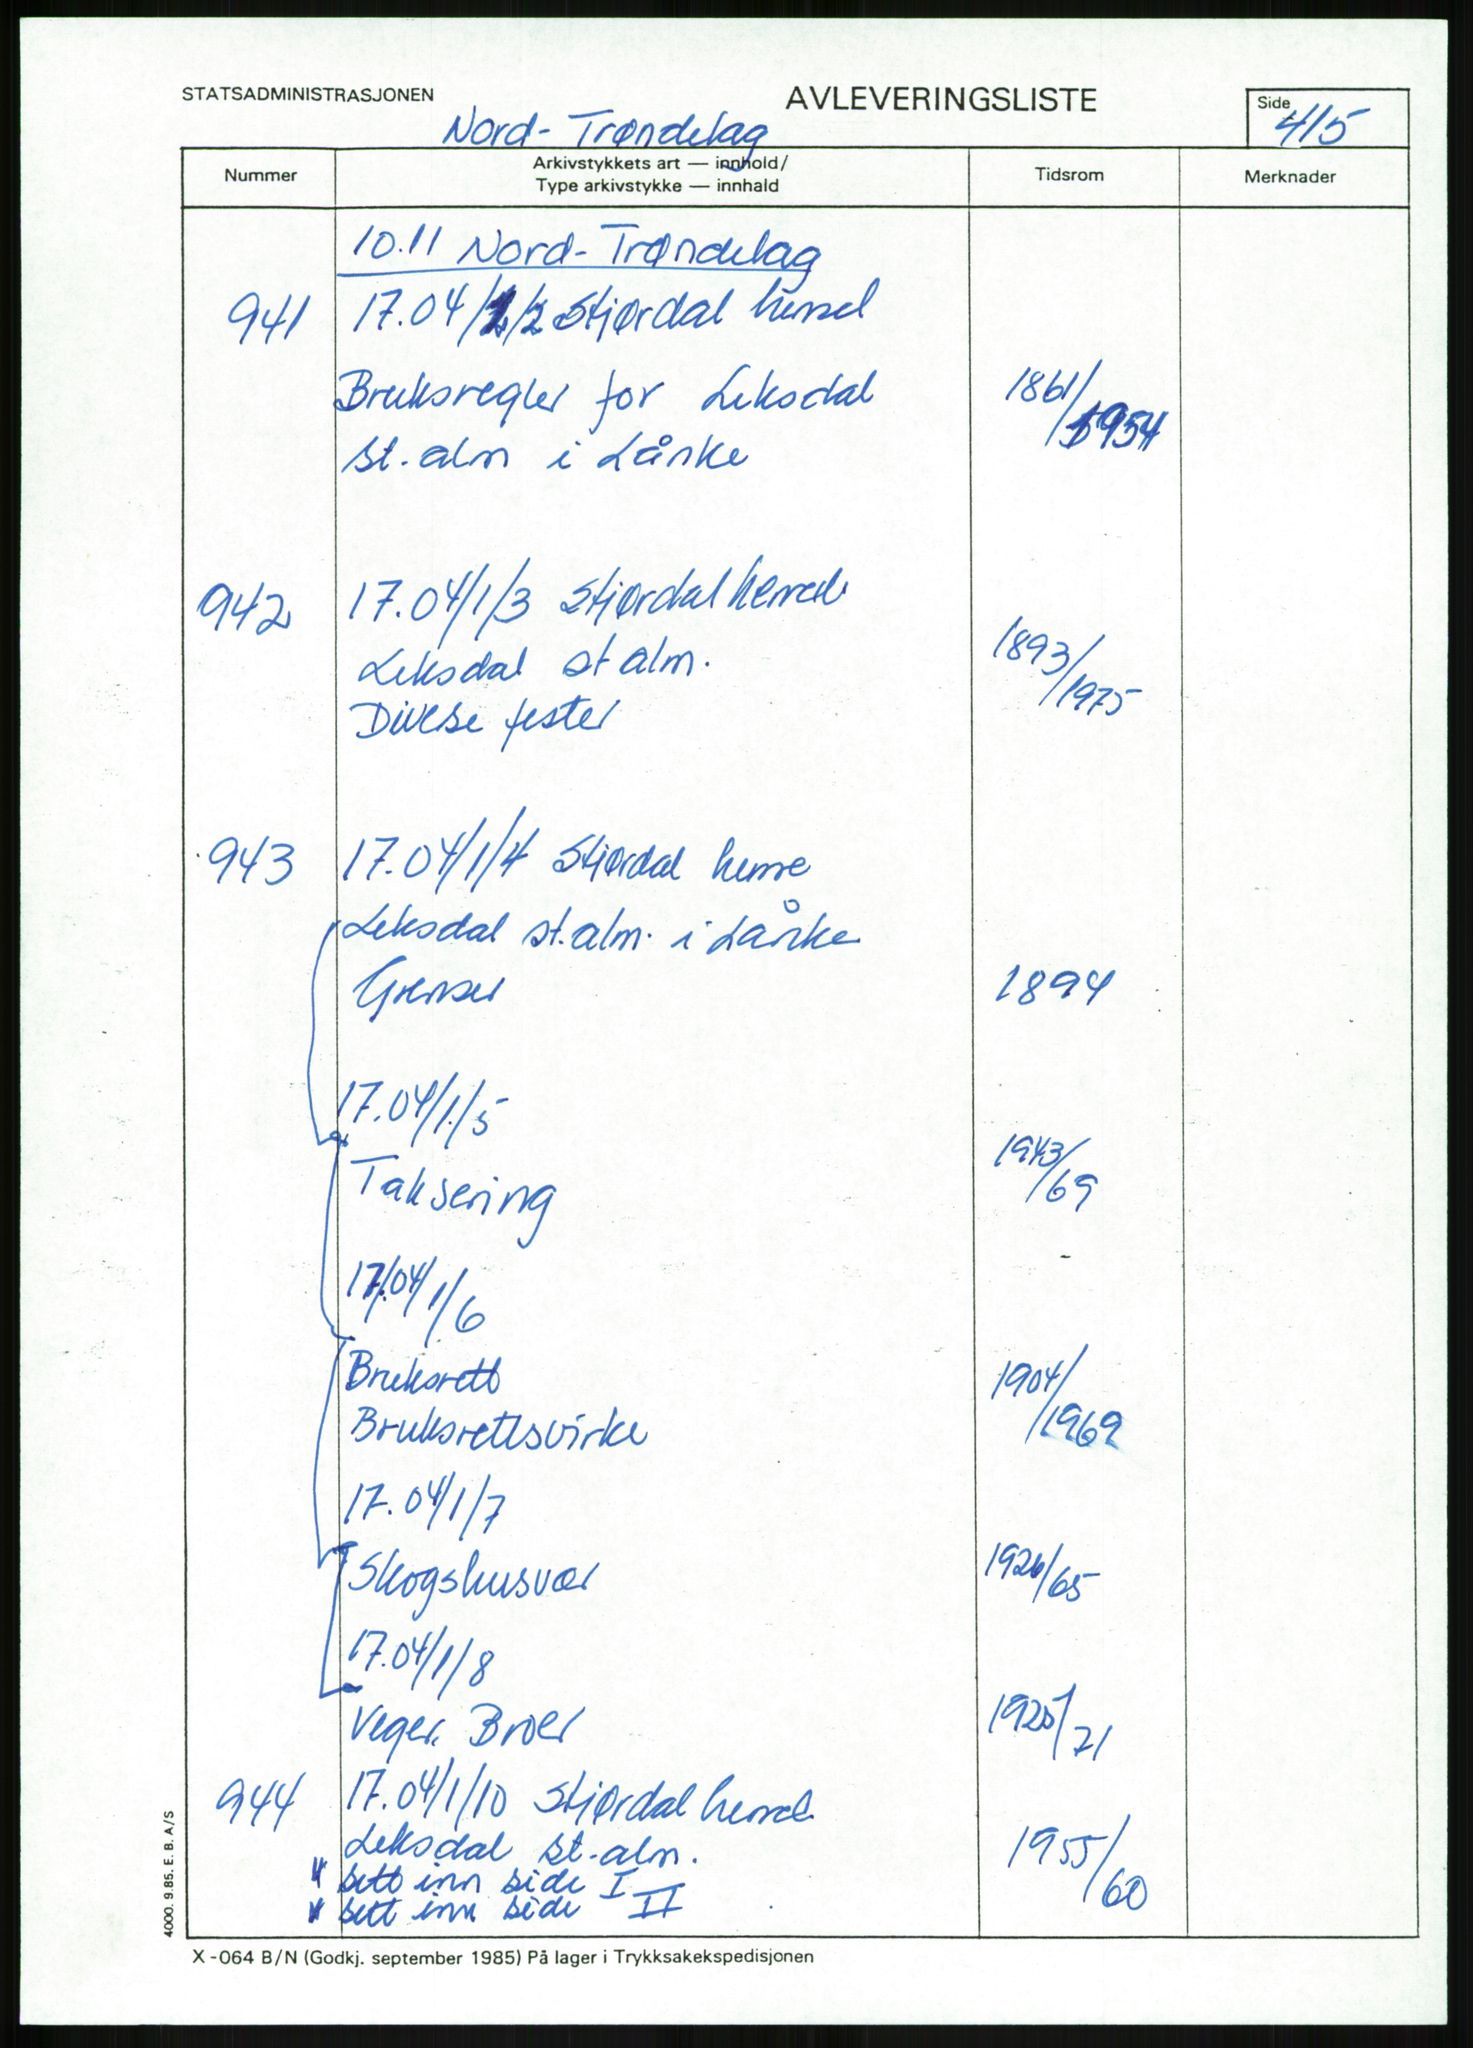 STATSADMINISTRASJONEN
AVLEVERINGSLISTE
Side 415
Nord-Trøndelag
Nummer
Arkivstykkets art — innhold/
Type arkivstykke — innhald
Tidsrom
Merknader
10.11 Nord-Trøndelag
941 17.04/1/2 Stjørdal herred
Bruksregler for Leksdal 1861/1954
st. alm i Lånke
942 17.04/1/3 Stjørdal herred
Leksdal st alm. 1893/1975
Diverse fester
943 17.04/1/4 Stjørdal herre
Leksdal st. alm. i Lånke
Grenser 1894
17.04/1/5
Taksering 1943/69
17.04/1/6
Bruksrett 1904/1969
Bruksrettsvirke
17.04/1/7
Skogshusvær 1926/65
17.04/1/8
Veger. Broer 1925/71
944 17.04/1/10 Stjørdal herred
Leksdal st. alm. 1955/60
* sett inn side I
* sett inn side II
4000. 9.85. E. B. A/S
X-064 B/N (Godkj. september 1985) På lager i Trykksakekspedisjonen